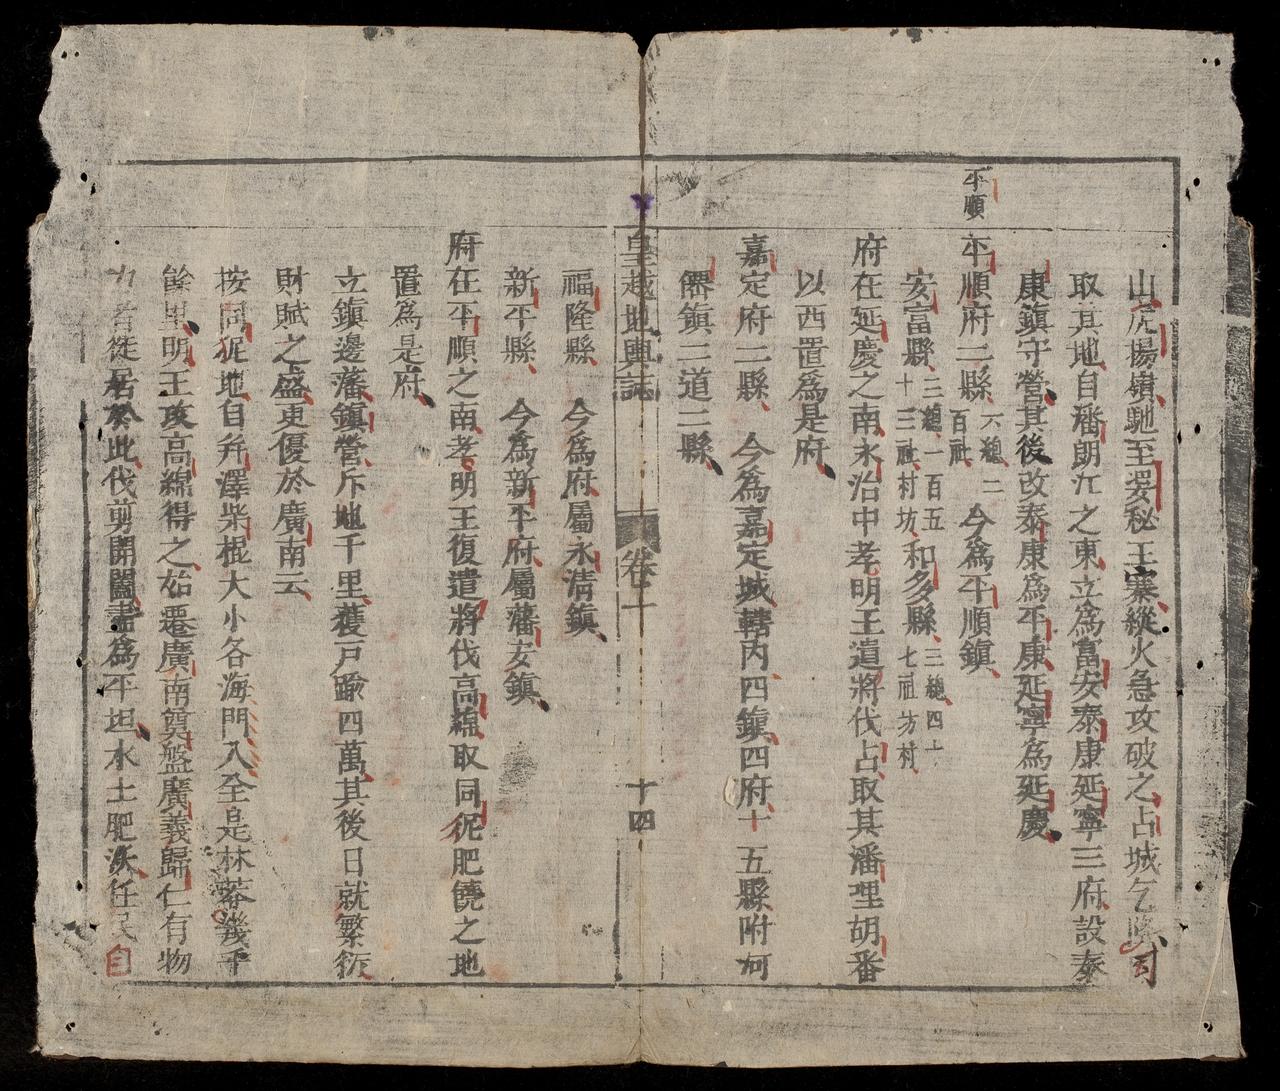 山虎揚嶺馳至婆秘王寨縱火急攻破之占城乞降司
取其地自潘朗江之東立為富安泰康延寧三府設泰
康鎮守營其後改泰康為平康延寧為延慶
平順
平順府二縣六總二百社今為平順鎮
安富縣三總一百五十三社村坊和多縣三總四十七社坊村
府在延慶之南永治中孝明王遣將伐占取其潘里胡番
以西置為是府
嘉定府二縣 今為嘉定城轄內四鎮四府十五縣附河
僊鎮二道二縣
皇越地輿誌 卷十 十四
福隆縣 今為府屬永清鎮
新平縣 今為新平府屬藩安鎮
府在平順之南孝明王復遣將伐高綿取同狔肥饒之地
置為是府
立鎮邊藩鎮營斥地千里獲戶踰四萬其後日就繁衍
財賦之盛更優於廣南云
按同狔地自弁澤柴棍大小各海門入全是林莽幾千
餘里明王攻高綿得之始遷廣南奠盤廣義歸仁有物
力者徙居於此伐剪開闢盡為平坦水土肥沃任民自